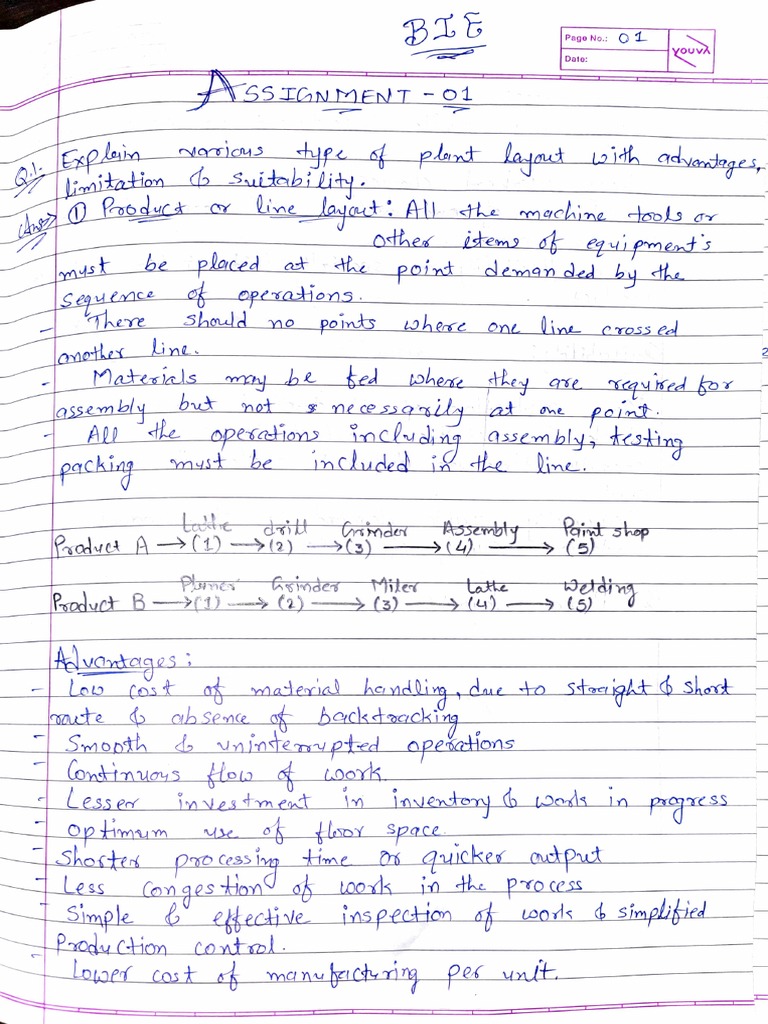 BIE
Page No.: 01
Date:
YOUVA
ASSIGNMENT - 01
Q.1: Explain various type of plant layout with advantages,
limitation & suitability.
(Ans)→ ① Product or line layout: All the machine tools or
other items of equipment's
must be placed at the point demanded by the
sequence of operations.
- There should no points where one line crossed
another line.
- Materials may be fed where they are required for
assembly but not necessarily at one point.
- All the operations including assembly, testing
packing must be included in the line.
Lathe drill Grinder Assembly Paint shop
Product A → (1) → (2) → (3) → (4) → (5)
Planer Grinder Miler Lathe Welding
Product B → (1) → (2) → (3) → (4) → (5)
Advantages:
- Low cost of material handling, due to straight & short
route & absence of backtracking
- Smooth & uninterrupted operations
- Continuous flow of work.
- Lesser investment in inventory & work in progress
- optimum use of floor space.
- Shorter processing time or quicker output
- Less congestion of work in the process
- Simple & effective inspection of work & simplified
Production control.
- Lower cost of manufacturing per unit.